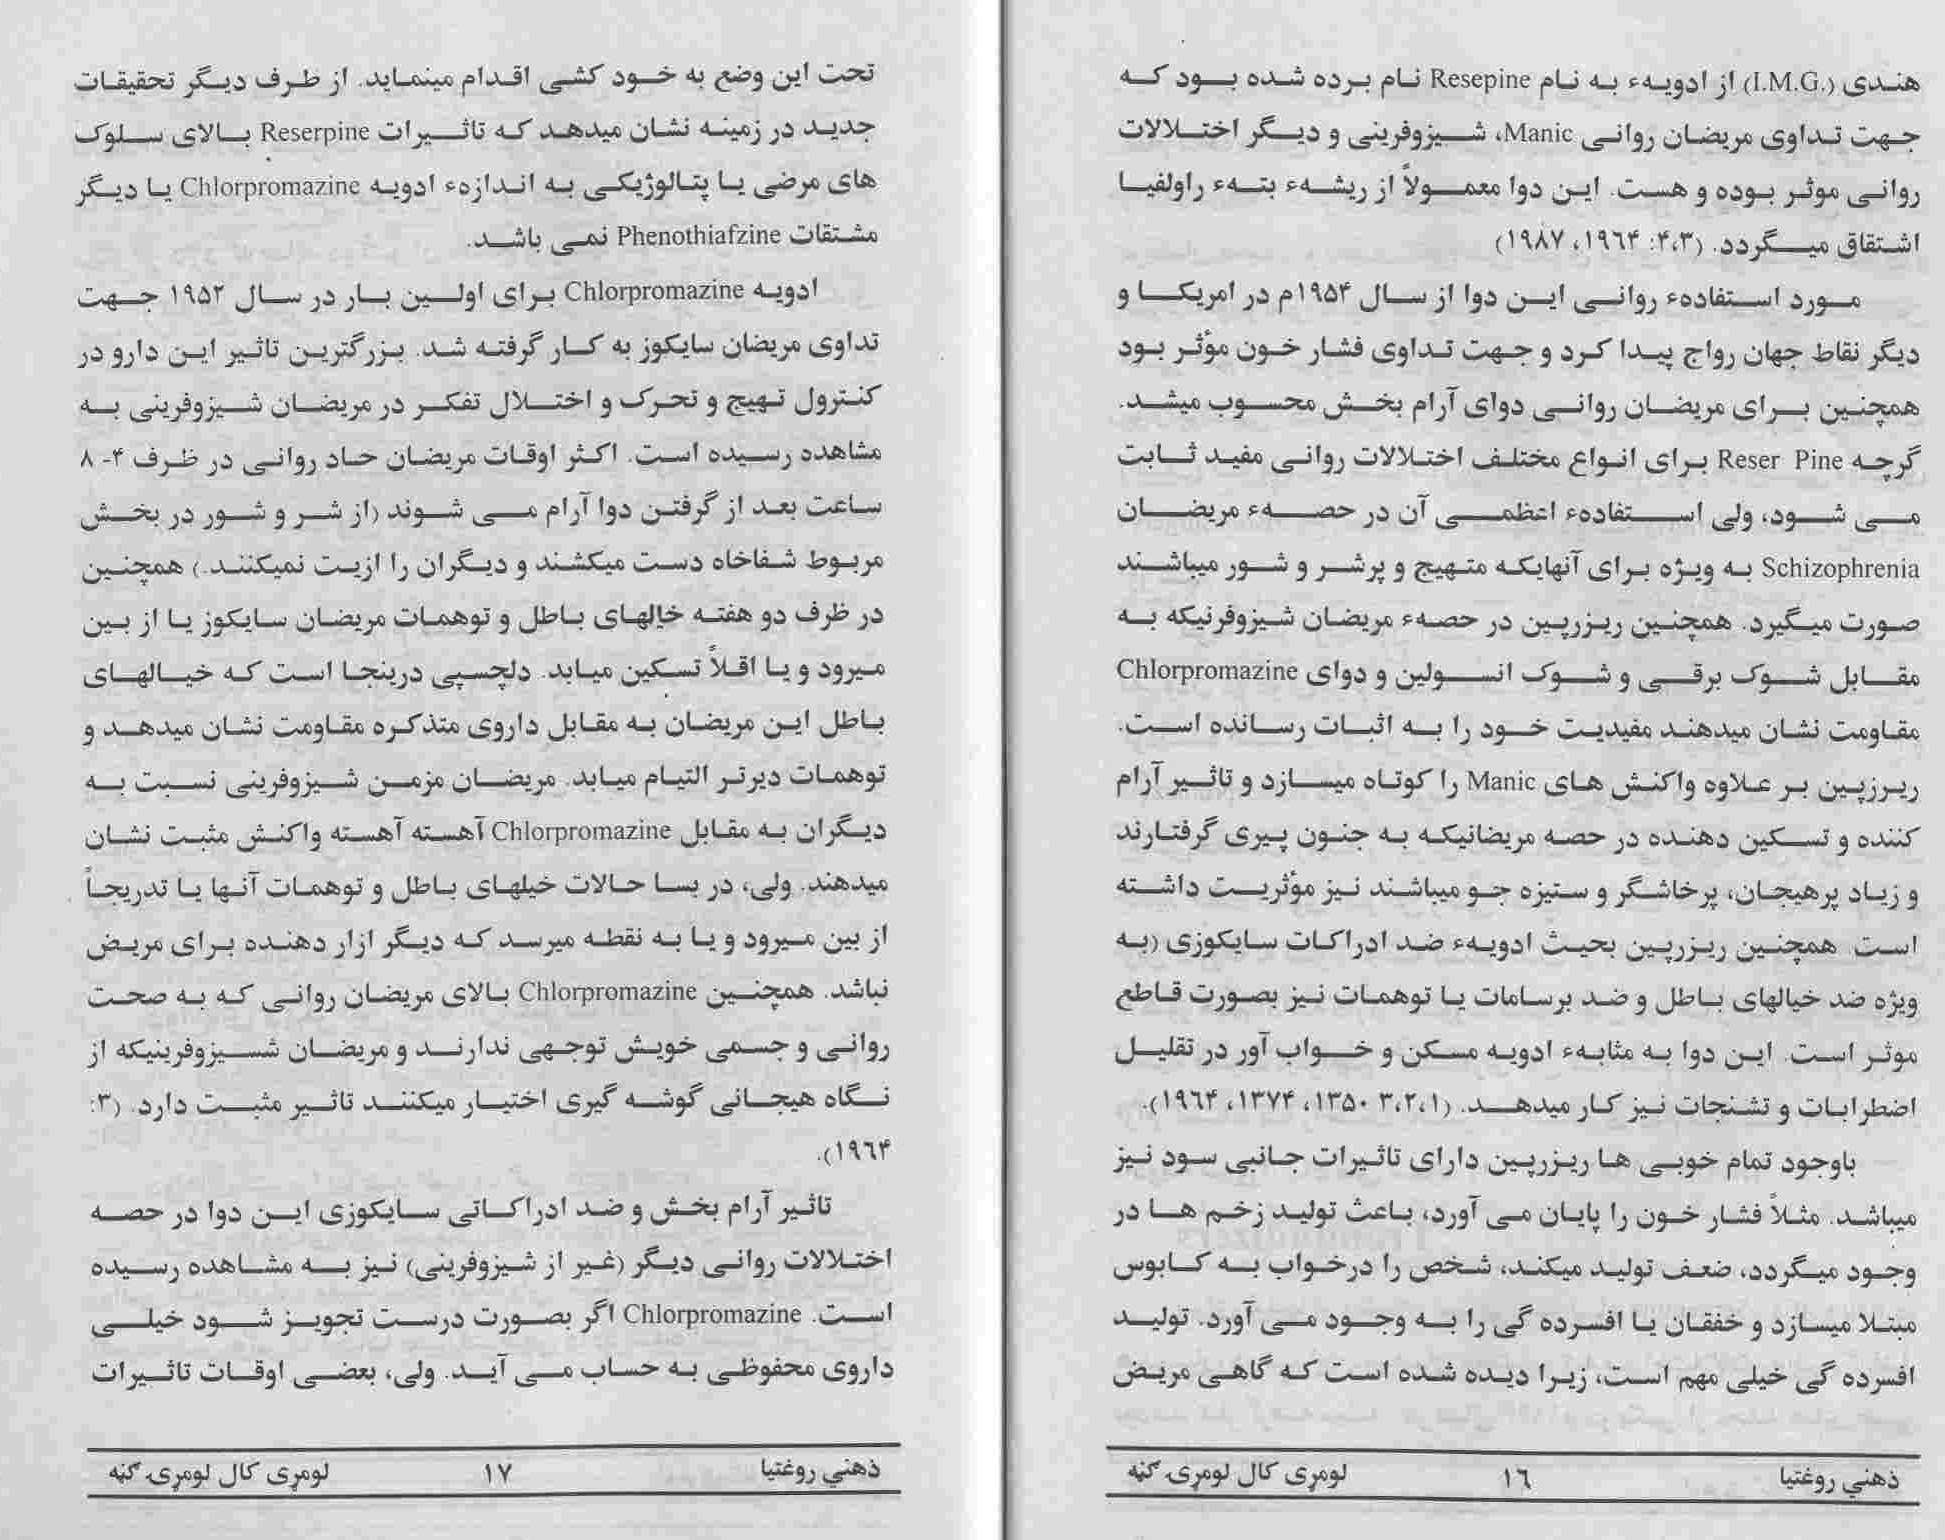 هندی (I.M.G.) از ادویهء به نام Resepine نام برده شده بود که
جهت تداوی مریضان روانی Manic، شیزوفرینی و دیگر اختلالات
روانی موثر بوده و هست. این دوا معمولاً از ریشهء بتهء راولفیا
اشتقاق میگردد. (۴،۳: ۱۹٦۴، ۱۹۸۷)
مورد استفادهء روانی این دوا از سال ۱۹۵۴م در امریکا و
دیگر نقاط جهان رواج پیدا کرد و جهت تداوی فشار خون مؤثر بود
همچنین برای مریضان روانی دوای آرام بخش محسوب میشد.
گرچه Reser Pine برای انواع مختلف اختلالات روانی مفید ثابت
می شود، ولی استفادهء اعظمی آن در حصهء مریضان
Schizophrenia به ویژه برای آنهایکه متهیج و پرشر و شور میباشند
صورت میگیرد. همچنین ریزرپین در حصهء مریضان شیزوفرنیکه به
مقابل شوک برقی و شوک انسولین و دوای Chlorpromazine
مقاومت نشان میدهند مفیدیت خود را به اثبات رسانده است.
ریرزپین بر علاوه واکنش های Manic را کوتاه میسازد و تاثیر آرام
کننده و تسکین دهنده در حصه مریضانیکه به جنون پیری گرفتارند
و زیاد پرهیجان، پرخاشگر و ستیزه جو میباشند نیز مؤثریت داشته
است همچنین ریزرپین بحیث ادویهء ضد ادراکات سایکوزی (به
ویژه ضد خیالهای باطل و ضد برسامات یا توهمات نیز بصورت قاطع
موثر است. این دوا به مثابهء ادویه مسکن و خواب آور در تقلیل
اضطرابات و تشنجات نیز کار میدهد. (۳،۲،۱ ۱۳۵۰، ۱۳۷۴، ۱۹٦۴).
باوجود تمام خوبی ها ریزرپین دارای تاثیرات جانبی سود نیز
میباشد. مثلاً فشار خون را پایان می آورد، باعث تولید زخم ها در
وجود میگردد، ضعف تولید میکند، شخص را درخواب به کابوس
مبتلا میسازد و خفقان یا افسرده گی را به وجود می آورد. تولید
افسرده گی خیلی مهم است، زیرا دیده شده است که گاهی مریض
ذهني روغتیا ۱٦ لومړی کال لومړۍ ګڼه
تحت این وضع به خود کشی اقدام مینماید. از طرف دیگر تحقیقات
جدید در زمینه نشان میدهد که تاثیرات Reserpine بالای سلوک
های مرضی یا پتالوژیکی به اندازهء ادویه Chlorpromazine یا دیگر
مشتقات Phenothiafzine نمی باشد.
ادویه Chlorpromazine برای اولین بار در سال ۱۹۵۲ جهت
تداوی مریضان سایکوز به کار گرفته شد. بزرگترین تاثیر این دارو در
کنترول تهیج و تحرک و اختلال تفکر در مریضان شیزوفرینی به
مشاهده رسیده است. اکثر اوقات مریضان حاد روانی در ظرف ۴- ۸
ساعت بعد از گرفتن دوا آرام می شوند (از شر و شور در بخش
مربوط شفاخاه دست میکشند و دیگران را ازیت نمیکنند.) همچنین
در ظرف دو هفته خیالهای باطل و توهمات مریضان سایکوز یا از بین
میرود و یا اقلاً تسکین میابد. دلچسپی درینجا است که خیالهای
باطل این مریضان به مقابل داروی متذکره مقاومت نشان میدهد و
توهمات دیرتر التیام میابد. مریضان مزمن شیزوفرینی نسبت به
دیگران به مقابل Chlorpromazine آهسته آهسته واکنش مثبت نشان
میدهند. ولی، در بسا حالات خیلهای باطل و توهمات آنها یا تدریجاً
از بین میرود و یا به نقطه میرسد که دیگر ازار دهنده برای مریض
نباشد. همچنین Chlorpromazine بالای مریضان روانی که به صحت
روانی و جسمی خویش توجهی ندارند و مریضان شسیزوفرینیکه از
نگاه هیجانی گوشه گیری اختیار میکنند تاثیر مثبت دارد. (۳:
۱۹٦۴).
تاثیر آرام بخش و ضد ادراکاتی سایکوزی این دوا در حصه
اختلالات روانی دیگر (غیر از شیزوفرینی) نیز به مشاهده رسیده
است. Chlorpromazine اگر بصورت درست تجویز شود خیلی
داروی محفوظی به حساب می آید. ولی، بعضی اوقات تاثیرات
ذهني روغتیا ۱۷ لومړی کال لومړۍ ګڼه